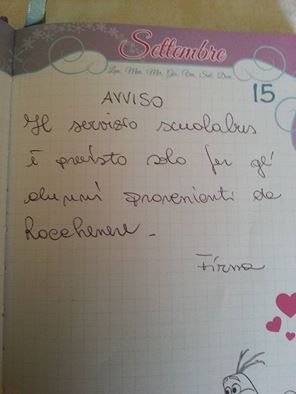 Settembre
Lun. Mar. Mer. Gio. Ven. Sab. Dom.
15
AVVISO
Il servizio scuolabus
è previsto solo per gli
alunni provenienti da
Roccavenere.
Firma